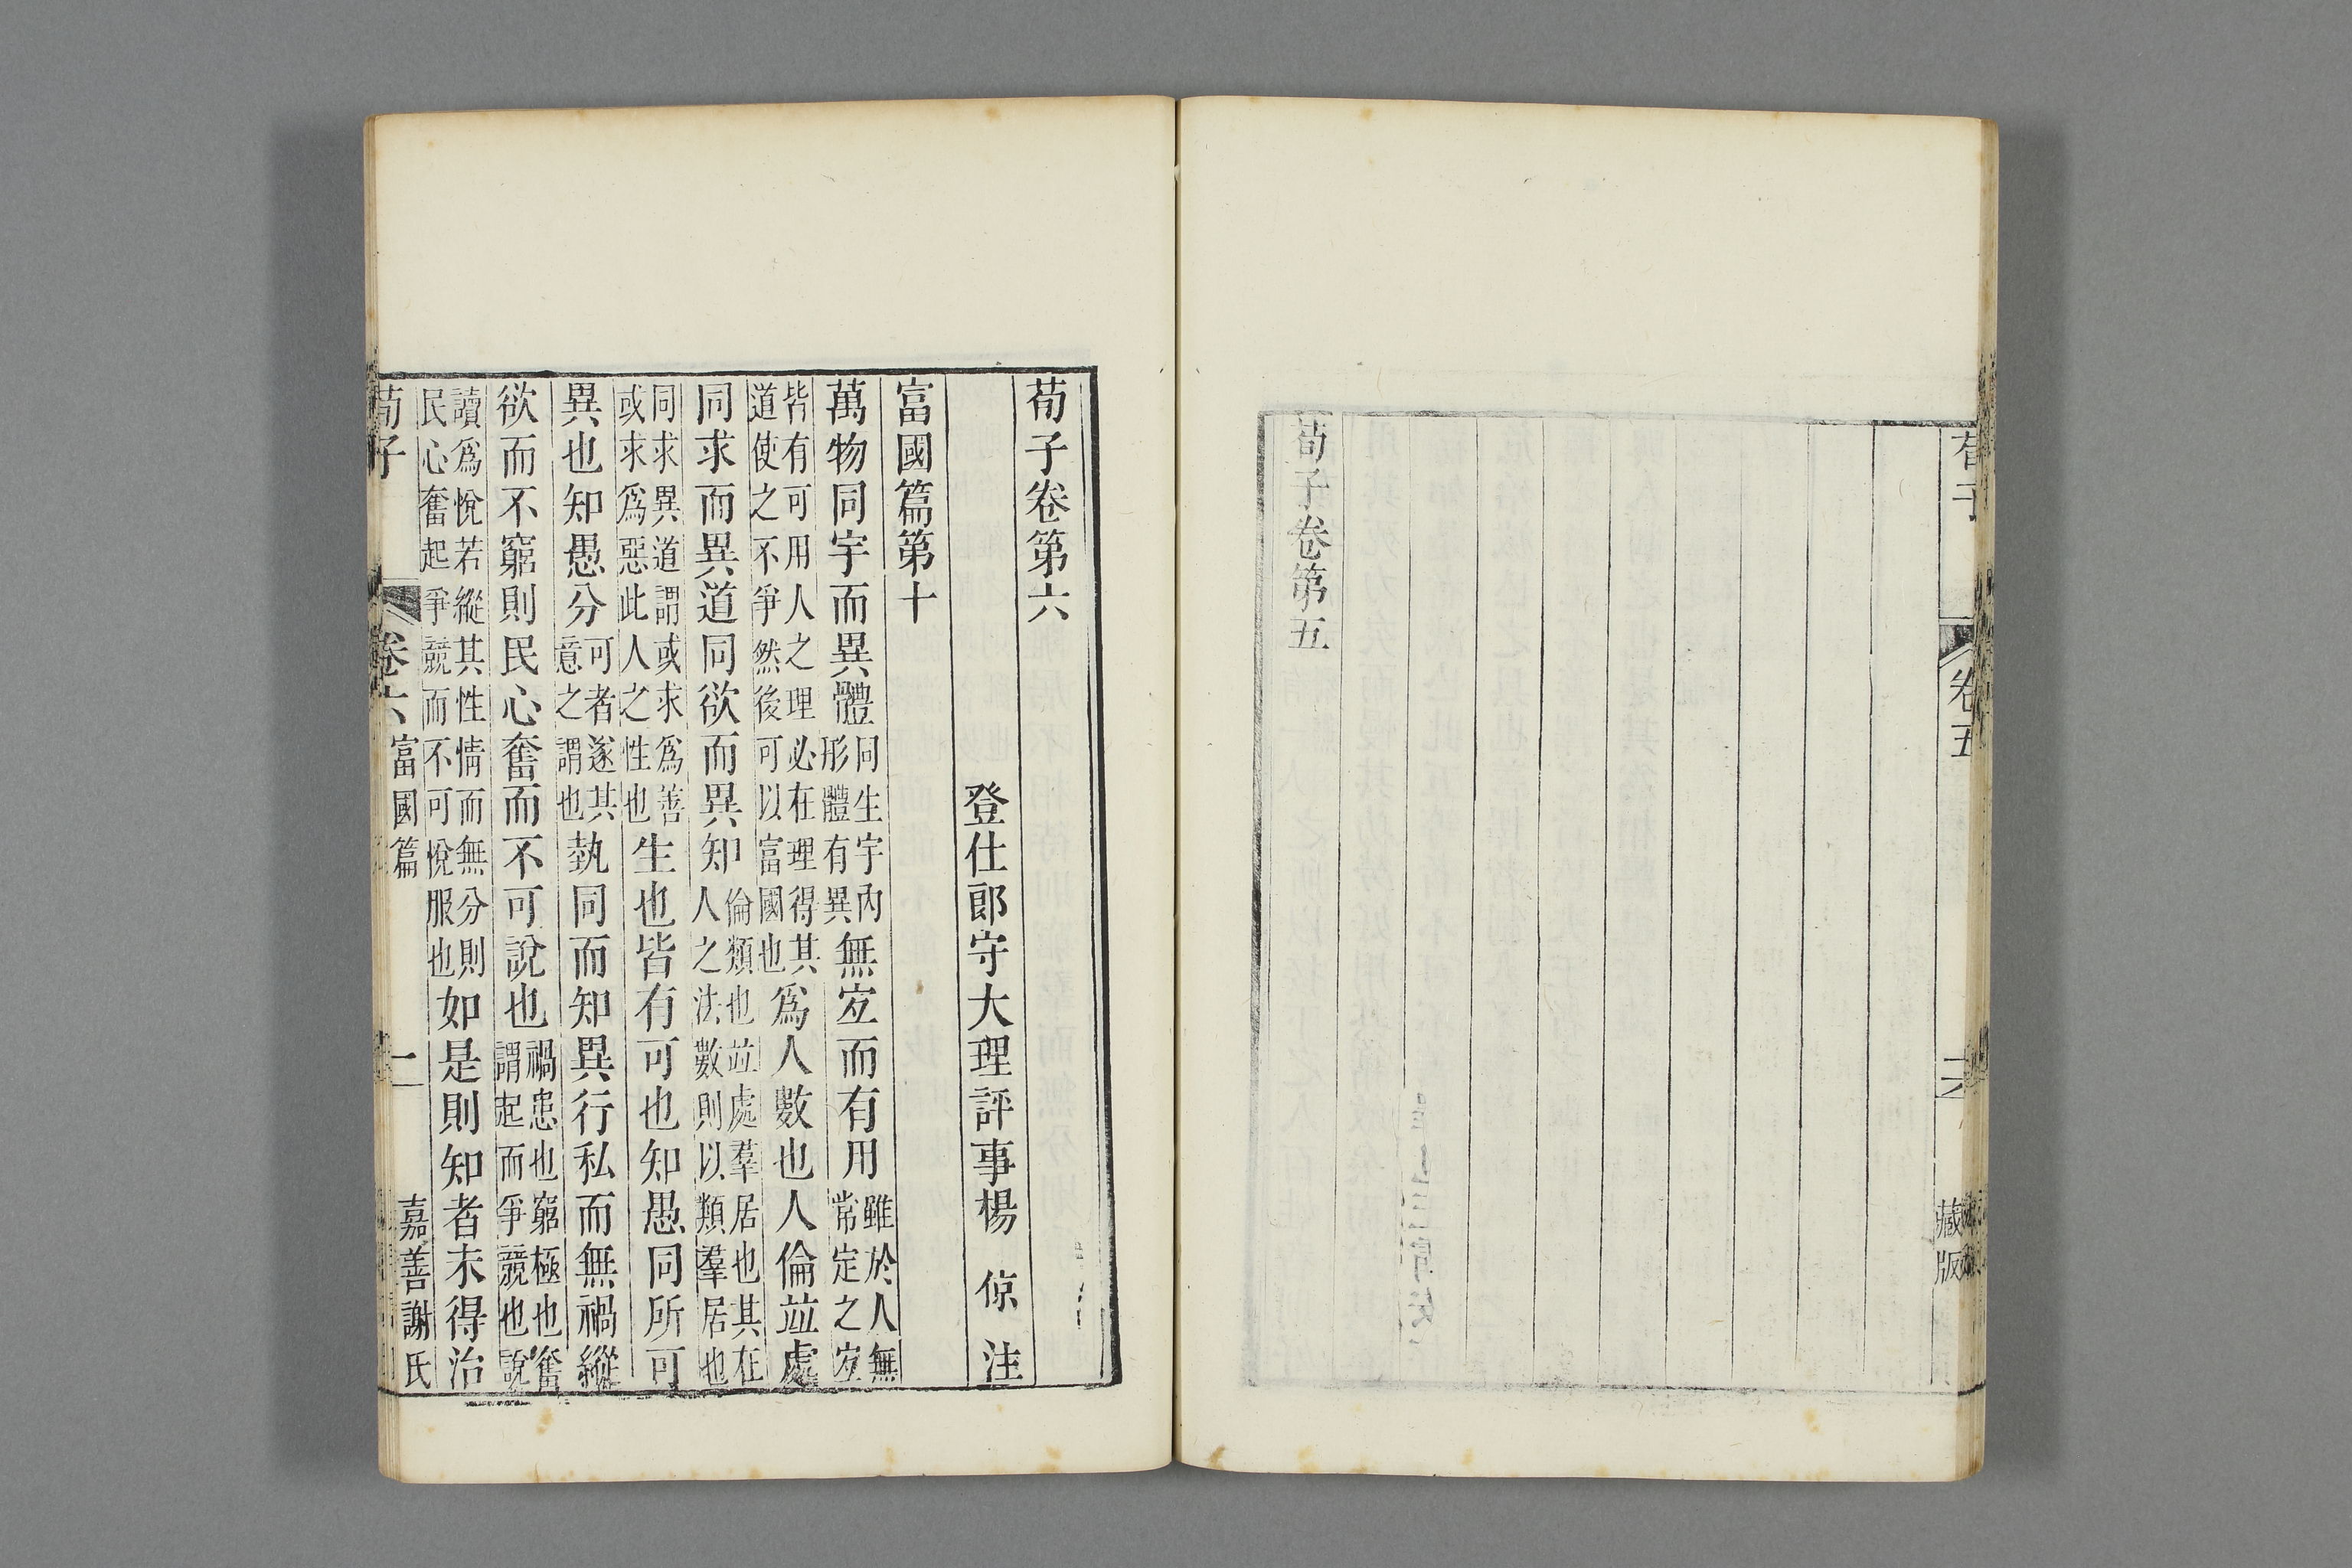 荀子
卷五
藏版
荀子卷第五
荀子卷第六
登仕郎守大理評事楊 倞 注
富國篇第十
萬物同宇而異體同生宇內形體有異無宐而有用雖於人無常定之宐
皆有可用人之理必在理得其道使之不爭然後可以富國也爲人數也人倫竝處
同求而異道同欲而異知倫類也竝處羣居也其在人之法數則以類羣居也
同求異道謂或求爲善或求爲惡此人之性也生也皆有可也知愚同所可
異也知愚分可者遂其意之謂也埶同而知異行私而無禍縱
欲而不窮則民心奮而不可說也禍患也窮極也奮謂起而爭競也說
讀爲悅若縱其性情而無分則民心奮起爭競而不可悅服也如是則知者未得治
荀子
卷六
富國篇
一
嘉善謝氏